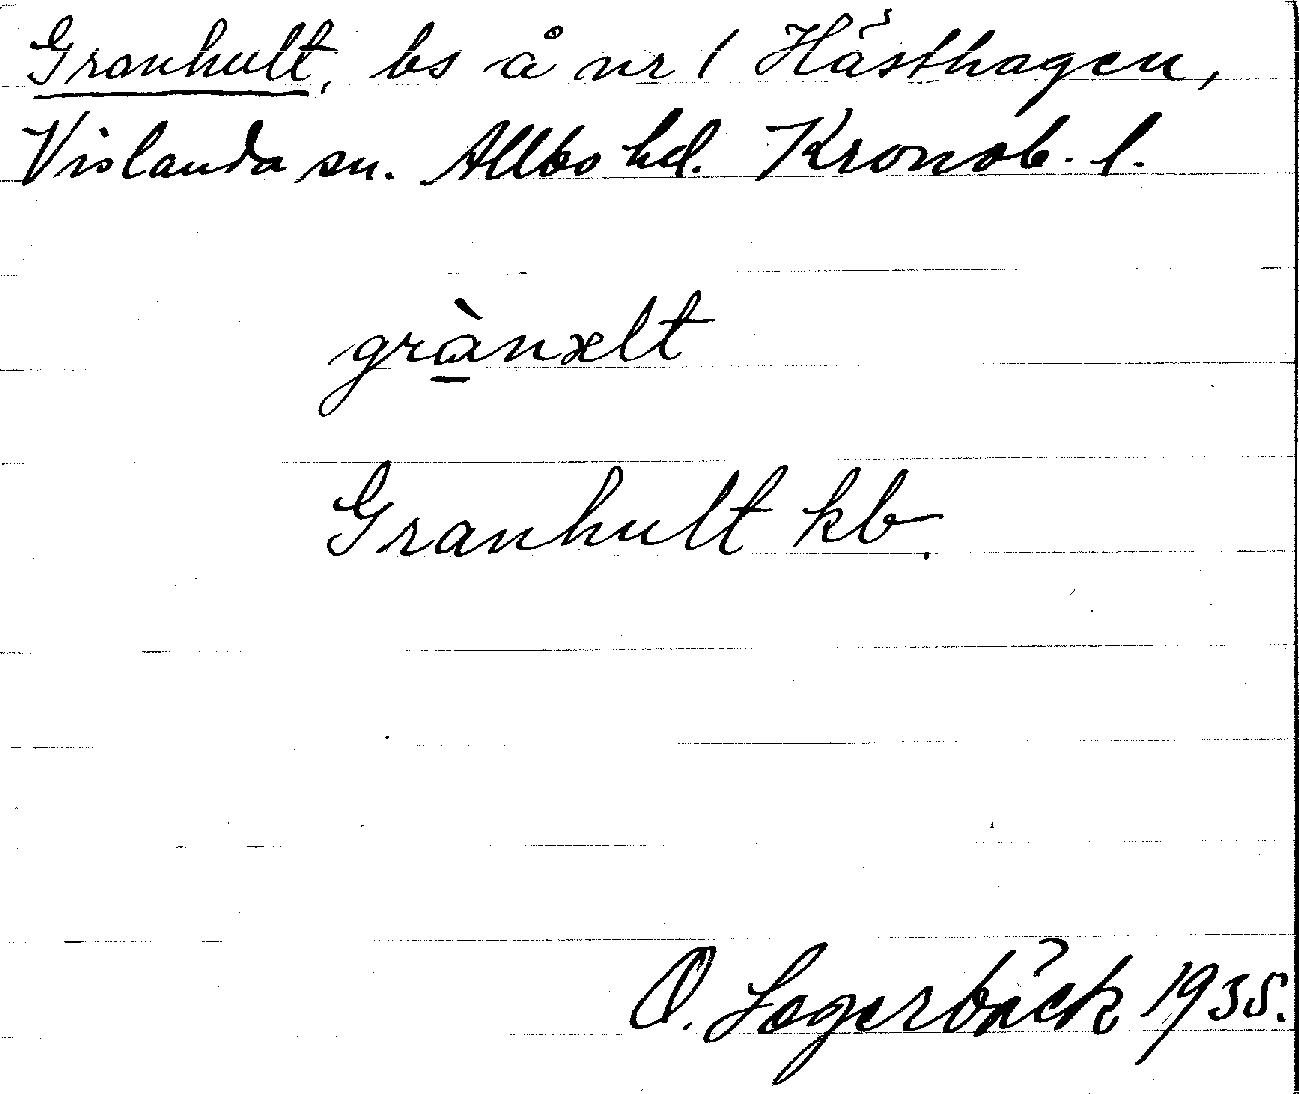 Granhult, bs å nr 1 Hästhagen,
Vislanda sn. Allbo hd. Kronob. l.
grà̱nælt
Granhult kb.
O. Lagerbäck 1935.